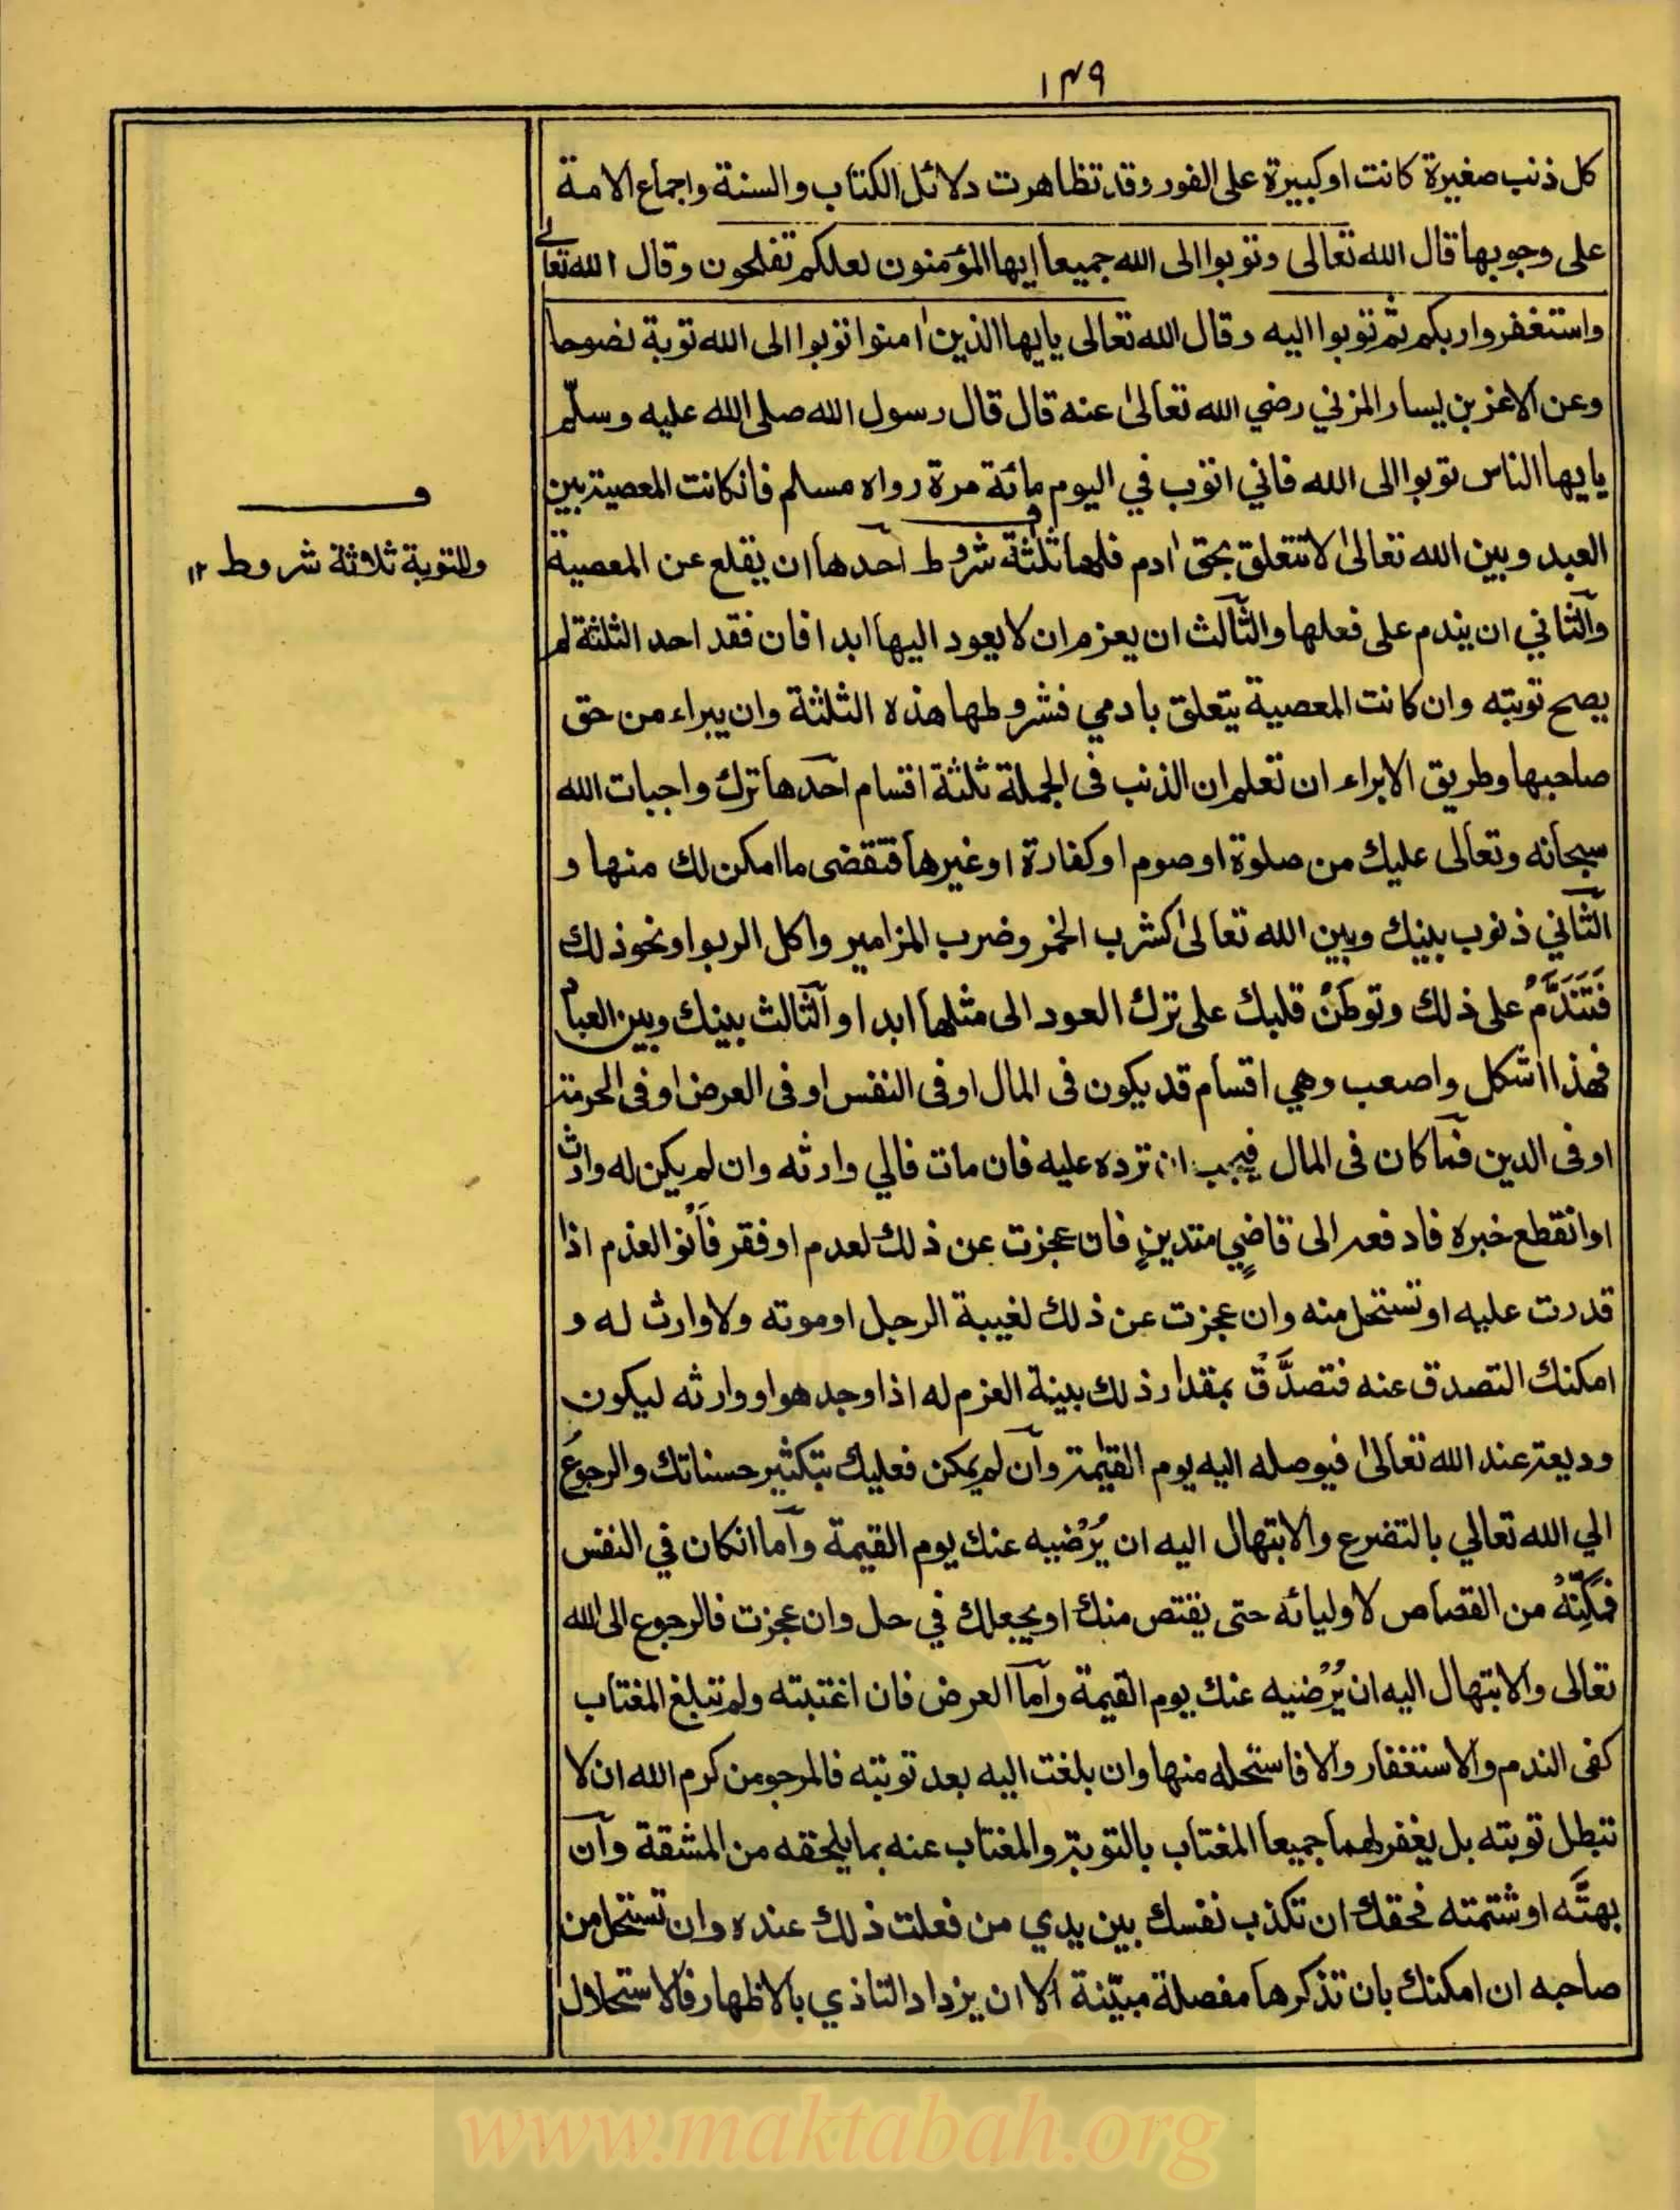 ١٣٩
كل ذنب صغيرة كانت او كبيرة على الفور وقد تظاهرت دلائل الكتاب والسنة واجماع الامة
على وجوبها قال الله تعالى وتوبوا الى الله جميعا ايها المؤمنون لعلكم تفلحون وقال الله تعالے
واستغفروا ربكم ثم توبوا اليه وقال الله تعالى يايها الذين اٰمنوا توبوا الى الله توبة نصوحا
وعن الاغر بن يسار المزني رضي الله تعالىٰ عنه قال قال رسول الله صلى الله عليه وسلّم
يايها الناس توبوا الى الله فاني اتوب في اليوم مائة مرة رواه مسلم فانكانت المعصية بين
العبد وبين الله تعالىٰ لا تتعلق بحق اٰدم فلها ثلثة شروط آحدها ان يقلع عن المعصية
وآلثاني ان يندم على فعلها وآلثالث ان يعزم ان لا يعود اليها ابدا فان فقد احد الثلثة لم
يصح توبته وان كانت المعصية يتعلق بادمي فشروطها هذه الثلثة وان يبراء من حق
صاحبها وطريق الابراء ان تعلم ان الذنب فى الجملة ثلثة اقسام آحدها ترك واجبات الله
سبحانه وتعالى عليك من صلوة او صوم او كفارة او غيرها فتقضى ما امكن لك منها و
آلثاني ذنوب بينك وبين الله تعالىٰ كشرب الخمر وضرب المزامير واكل الربوا ونحو ذلك
فَتَنَدَّمْ على ذلك وتوطنْ قلبك على ترك العود الى مثلها ابدا وآلثالث بينك وبين العباد
فهذا اشكل واصعب وهي اقسام قد يكون فى المال او فى النفس او فى العرض او فى الحرمة
او فى الدين فمآ كان فى المال فيجب ان ترده عليه فان مات فالي وارثه وان لم يكن له وارث
او انقطع خبره فادفعه الى قاضٍي متدينٍ فان عجزت عن ذلك لعدم او فقر فَانْوِ العزم اذا
قدرت عليه او تستحل منه وان عجزت عن ذلك لغيبة الرجل او موته ولا وارث له و
امكنك التصدق عنه فتصدَّقْ بمقدار ذلك بينة العزم له اذا وجد هو او وارثه ليكون
وديعة عند الله تعالىٰ فيوصله اليه يوم القيٰمة وآن لم يمكن فعليك بتكثير حسناتك والرجوع
الي الله تعالي بالتضرع والابتهال اليه ان يُرْضيه عنك يوم القيمة وآما انكان في النفس
فمَكِّنْهُ من القصاص لاوليائه حتى يقتص منك او يجعلك في حل وان عجزت فالرجوع الى الله
تعالى والابتهال اليه ان يُرْضيه عنك يوم القيمة وآما العرض فان اغتبته ولم تبلغ المغتاب
كفى الندم والاستغفار والا فاستحله منها وان بلغت اليه بعد توبته فالمرجو من كرم الله ان لا
تبطل توبته بل يغفر لهما جميعا المغتاب بالتوبة والمغتاب عنه بما يلحقه من المشقة وآن
بهتَّه او شتمته فحقك ان تكذب نفسك بين يدي من فعلت ذلك عنده وان تستحل من
صاحبه ان امكنك بان تذكرها مفصلة مبيّنة الا ان يزداد التاذي بالاظهار فالاستحلال
فـ
وللتوبة ثلاثة شروط ١٢
www.maktabah.org